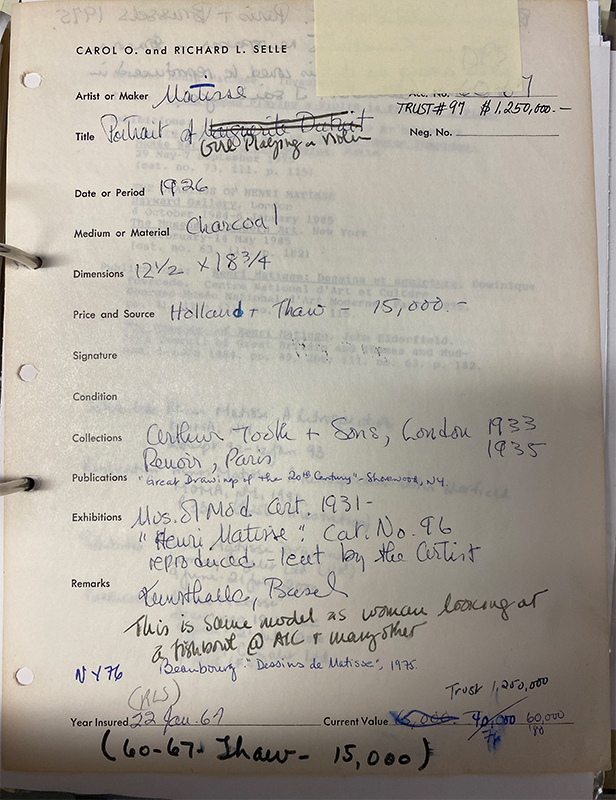 CAROL O. and RICHARD L. SELLE
Artist or Maker Matisse
TRUST #97 $1,250,000.—
Title Portrait of
Girl Playing a Violin
Neg. No.
Date or Period 1926
Medium or Material Charcoal
Dimensions 12 1/2 x 18 3/4
Price and Source Holland + Thaw - 15,000.-
Signature
Condition
Collections Arthur Tooth + Sons, London 1933
1935
Renoir, Paris
Publications "Great Drawings of the 20th Century" - Shorewood, N.Y.
Exhibitions Mus. of Mod. Art. 1931 -
"Henri Matisse". Cat. No. 96
reproduced - lent by the artist
Remarks Kunsthalle, Basel
This is same model as woman looking at
a fishbowl @ AIC + many other
NY76 Beaubourg "Dessins de Matisse", 1975.
(RLS)
Trust 1,250,000
Year Insured 22 Jan. 67 Current Value 15,000. 40,000 60,000
76 180
(60-67- Thaw - 15,000)